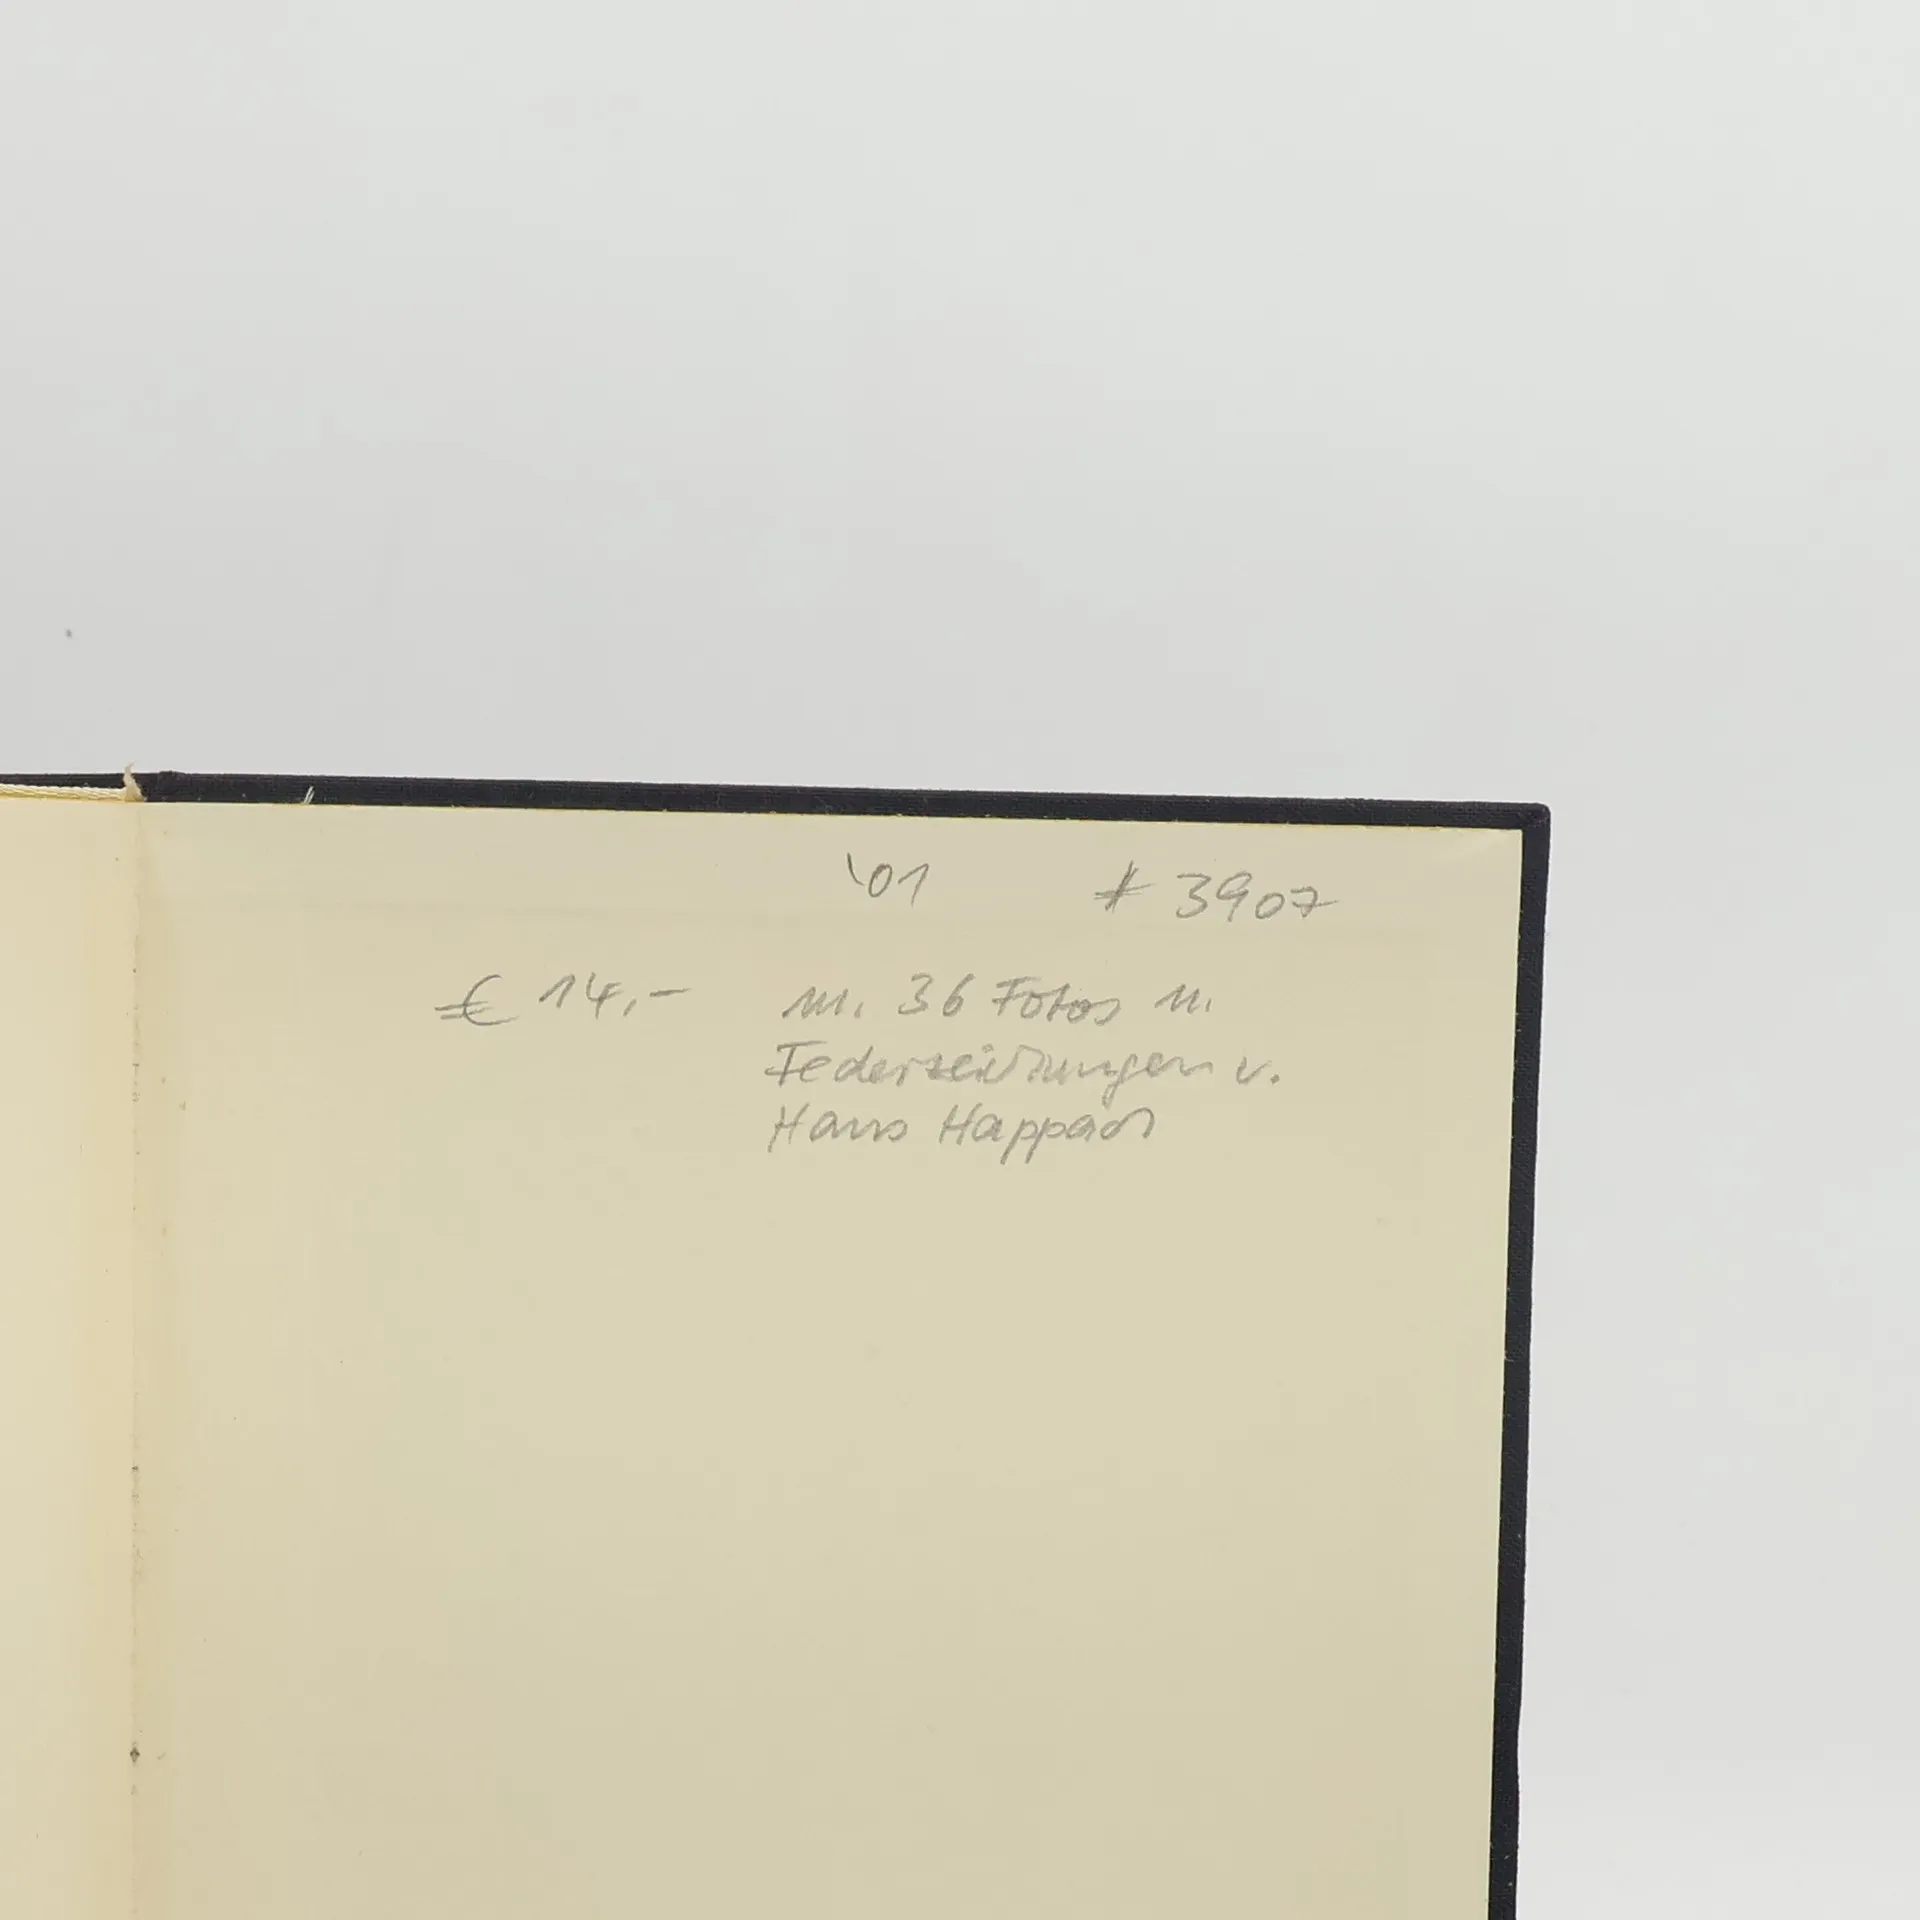 '01 # 3907
€ 14,- m. 36 Fotos u.
Federzeichnungen v.
Hans Happach